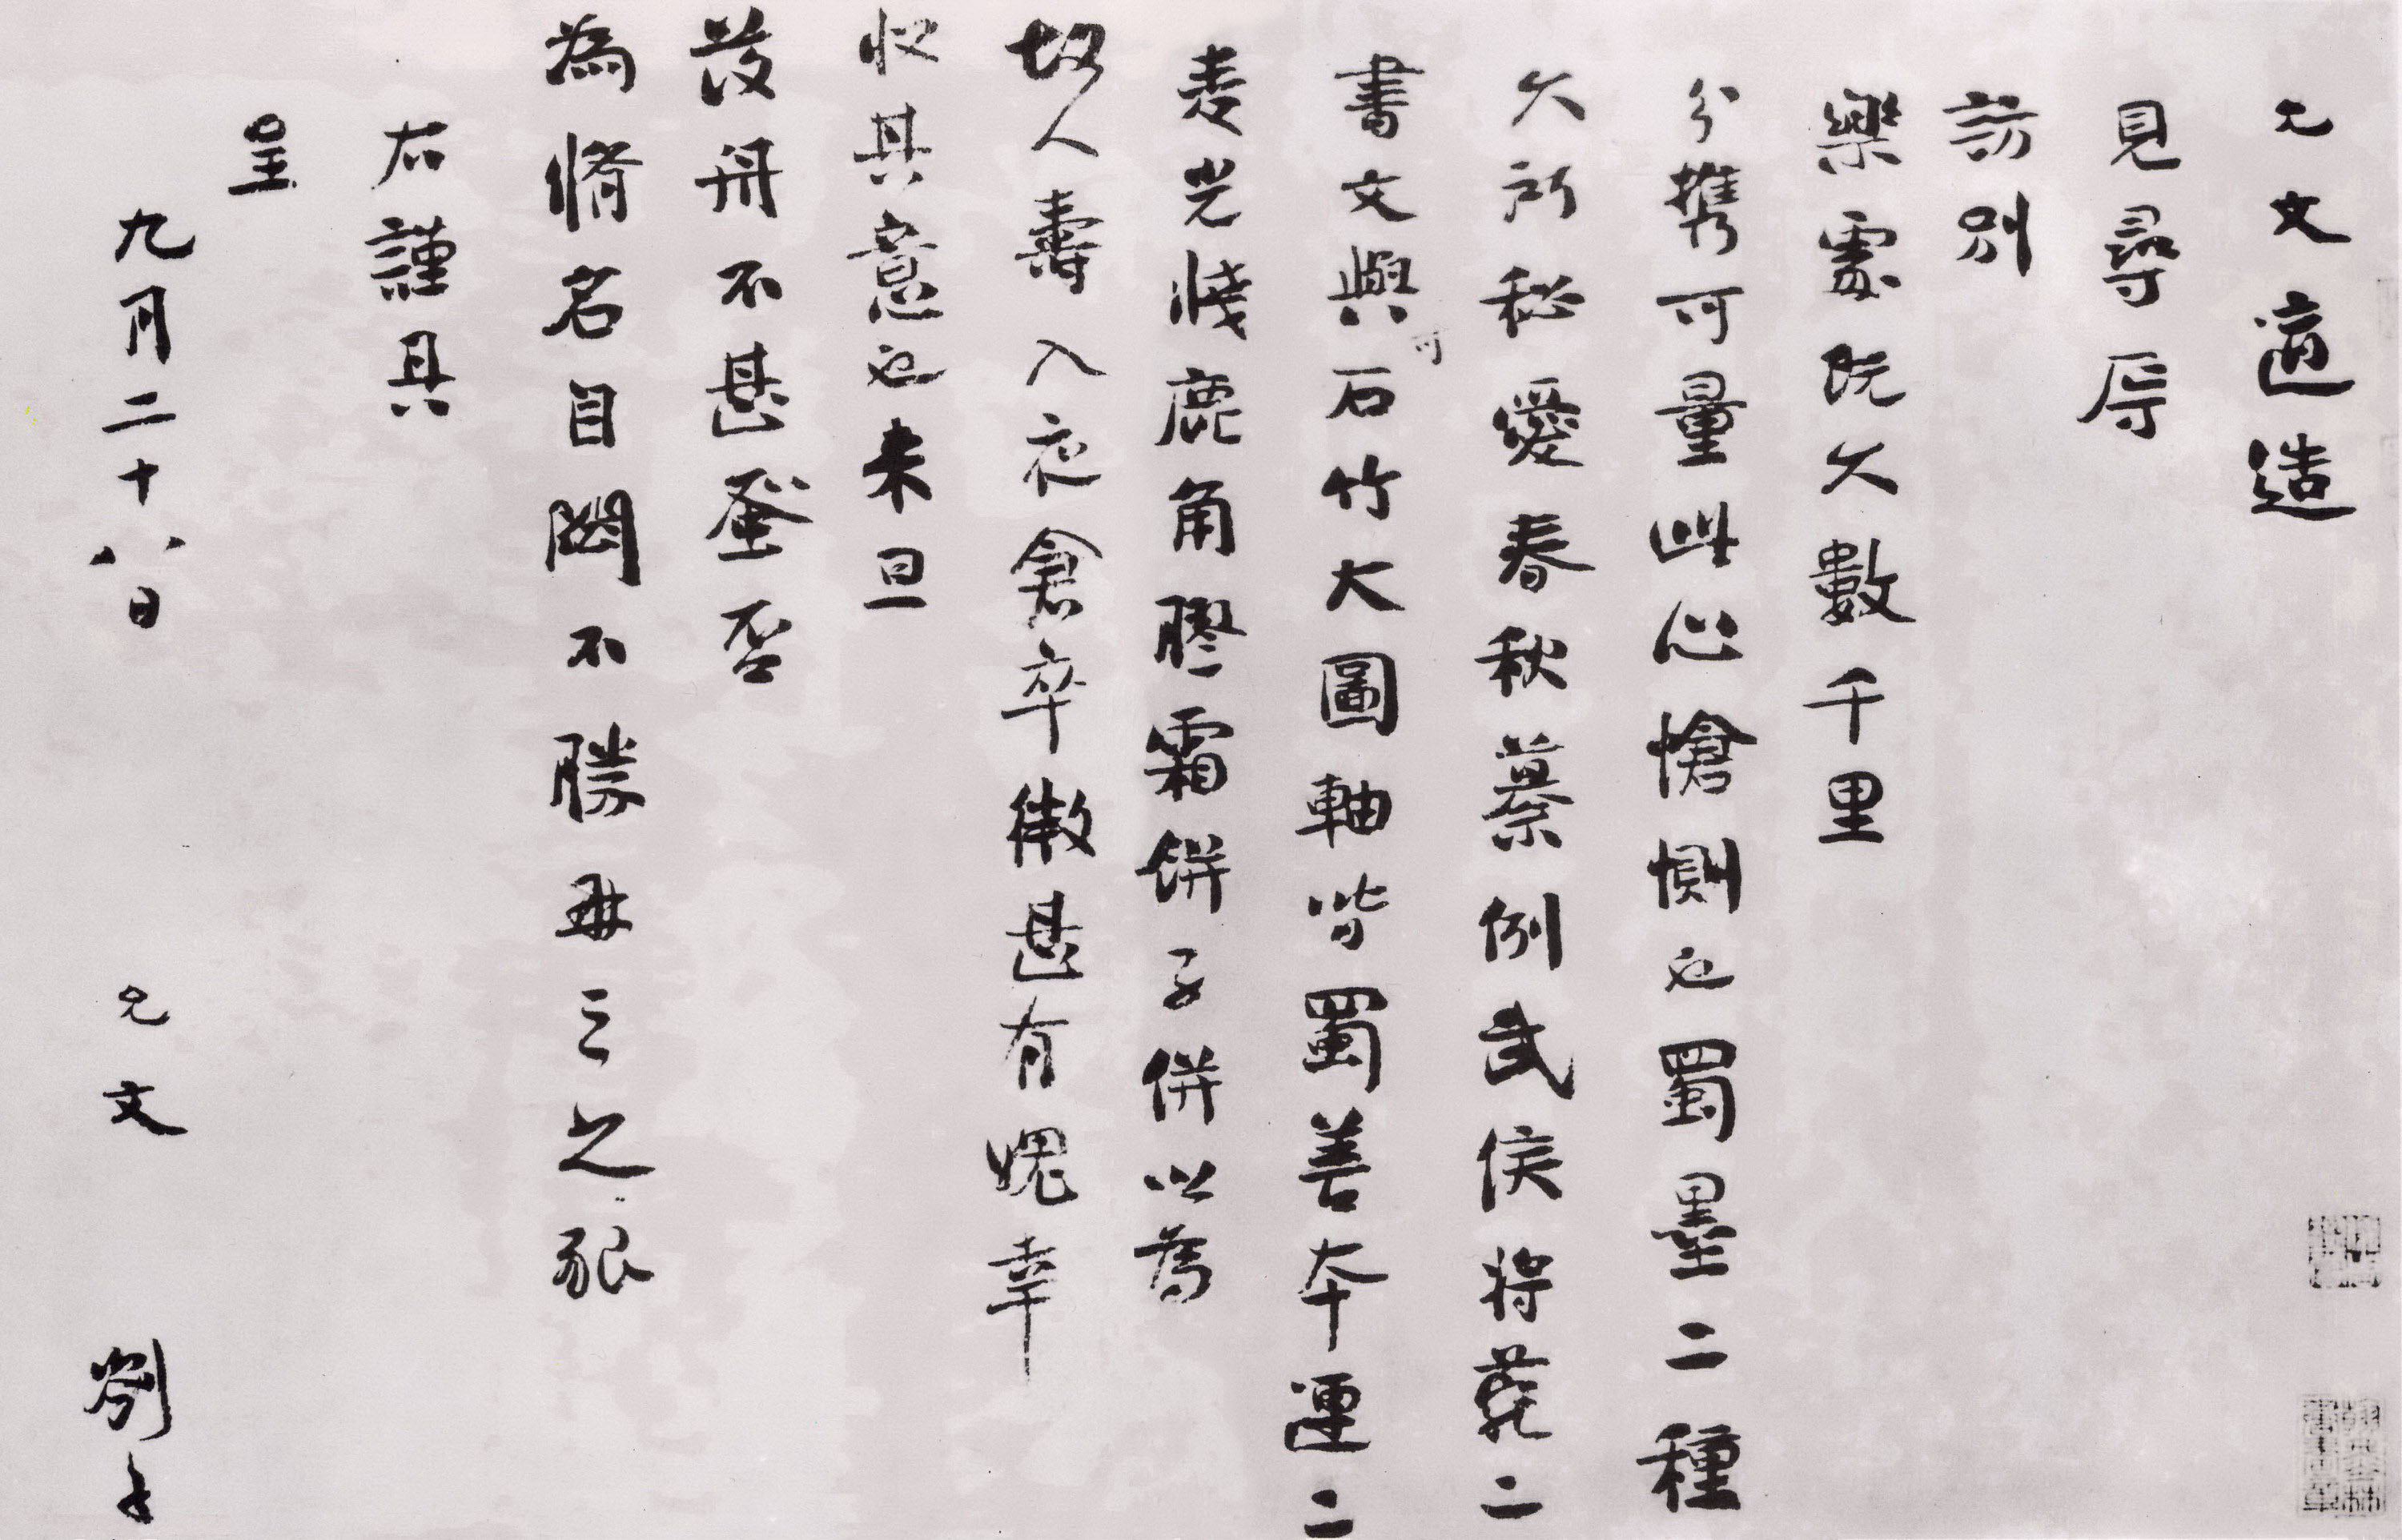 允文適造
見尋辱
訪別
樂處既久數千里
分攜可量此心愴惻也蜀墨二種
久所秘愛春秋纂例武侯將苑二
書文與可石竹大圖軸皆蜀善本連二
麦光牋鹿角膠霜餅子併以為
故人壽入夜倉卒微甚有媿幸
收其意也来旦
發舟不甚蚤否
為脩名自閟不勝毋三之
右謹具
呈
九月二十八日 允文 劄子